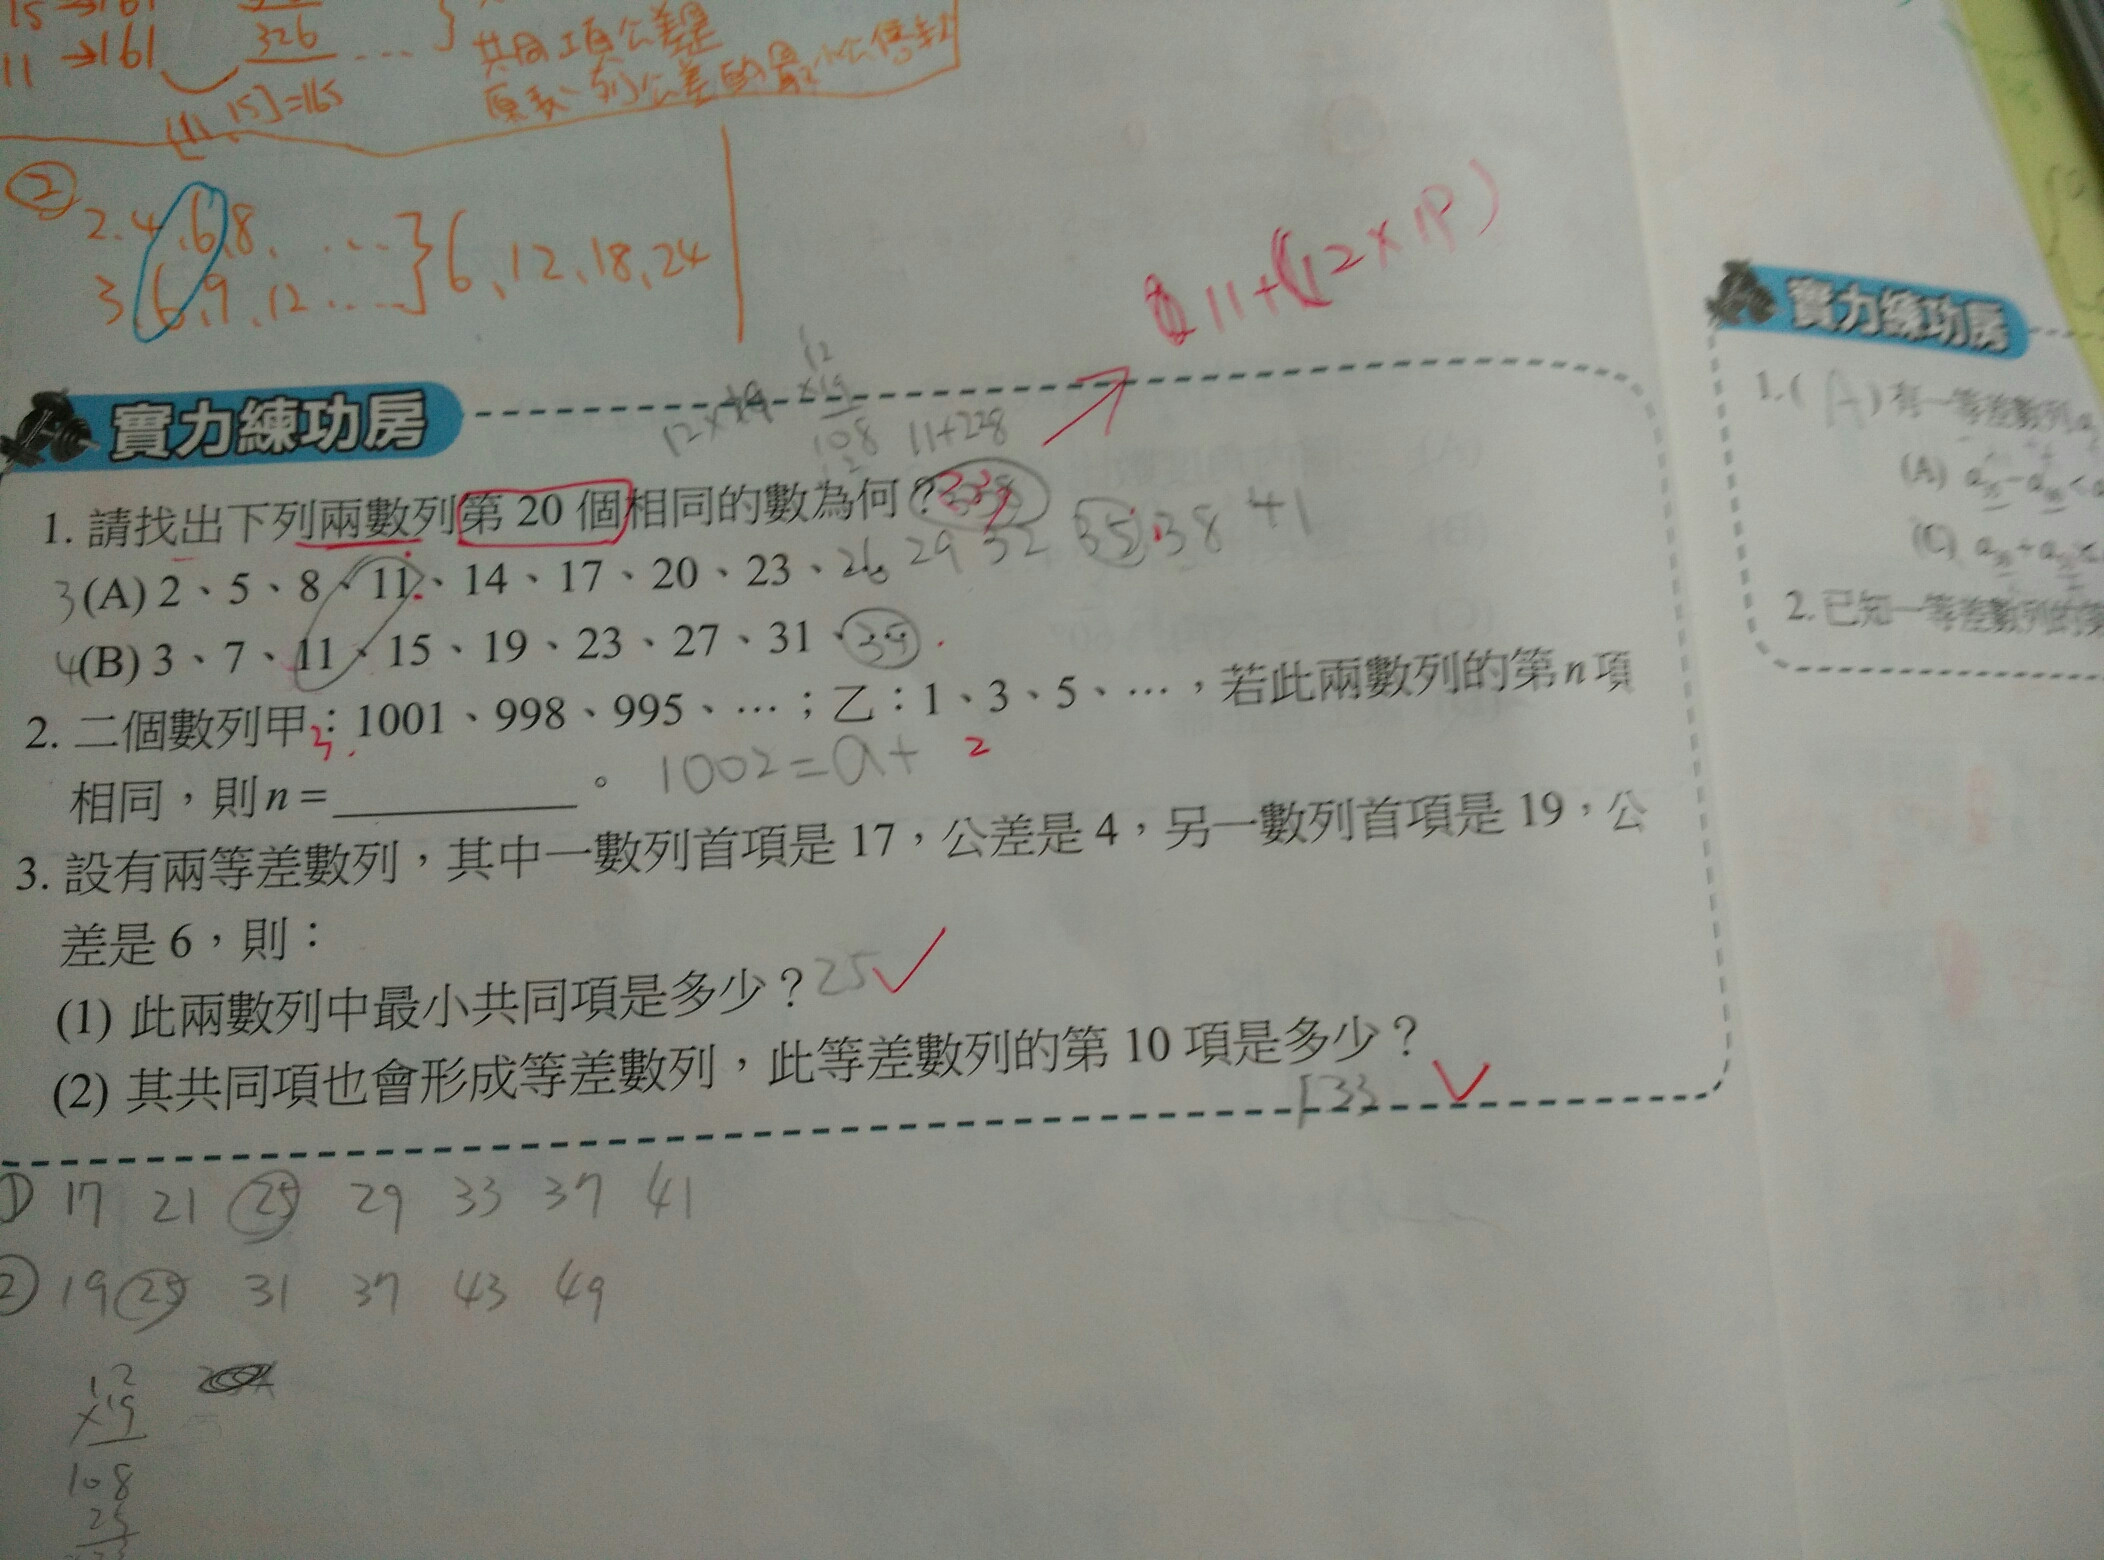 11 →161
326
...
共同項公差是
原表、列公差的最小公倍數
15]=165
②
2.4.6.8. ....
3.6.9.12....
}6、12、18、24
11+(12×19)
12×19
12
×19
108
11+228
實力練功房
1. 請找出下列兩數列第 20 個相同的數為何？
3(A) 2、5、8、11、14、17、20、23、26 29 32 35 38 41
4(B) 3、7、11、15、19、23、27、31、
2. 二個數列甲：1001、998、995、…；乙：1、3、5、…，若此兩數列的第 n 項
相同，則 n = ＿＿＿＿＿。 1002=a+ 2
3. 設有兩等差數列，其中一數列首項是 17，公差是 4，另一數列首項是 19，公
差是 6，則：
(1) 此兩數列中最小共同項是多少？25✓
(2) 其共同項也會形成等差數列，此等差數列的第 10 項是多少？
133 ✓
① 17 21 25 29 33 37 41
② 19 25 31 37 43 49
12
×19
108
25
實力練功房
1.( A ) 有一等差數列
(A)
(C)
2. 已知一等差數列的